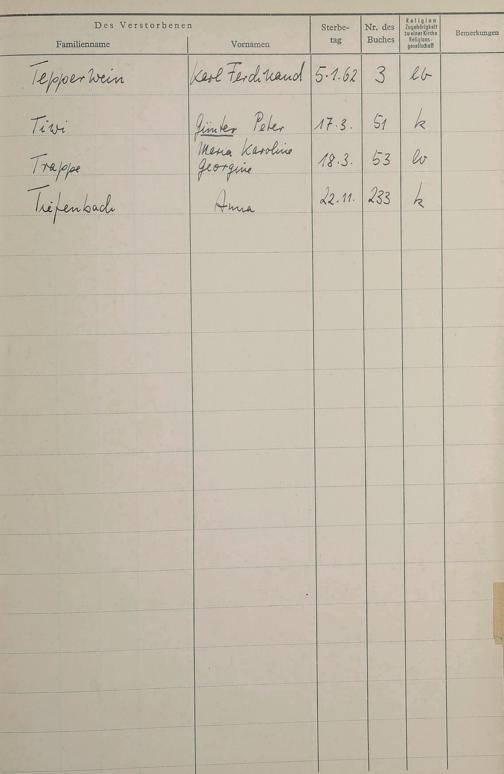 Des Verstorbenen
Familienname
Vornamen
Sterbe-
tag
Nr. des
Buches
Religion
Zugehörigkeit
zu einer Kirche
Religions-
gesellschaft
Bemerkungen
Tepperwein Karl Ferdinand 5.1.62 3 lb
Tiwi Günter Peter 17.3. 51 k
Maria Karoline
Trappe Georgine 18.3. 53 lb
Tiefenbach Anna 22.11. 233 k